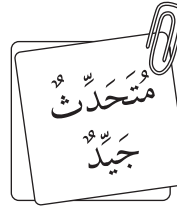 مُتَحَدِّثٌ
جَيِّدٌ